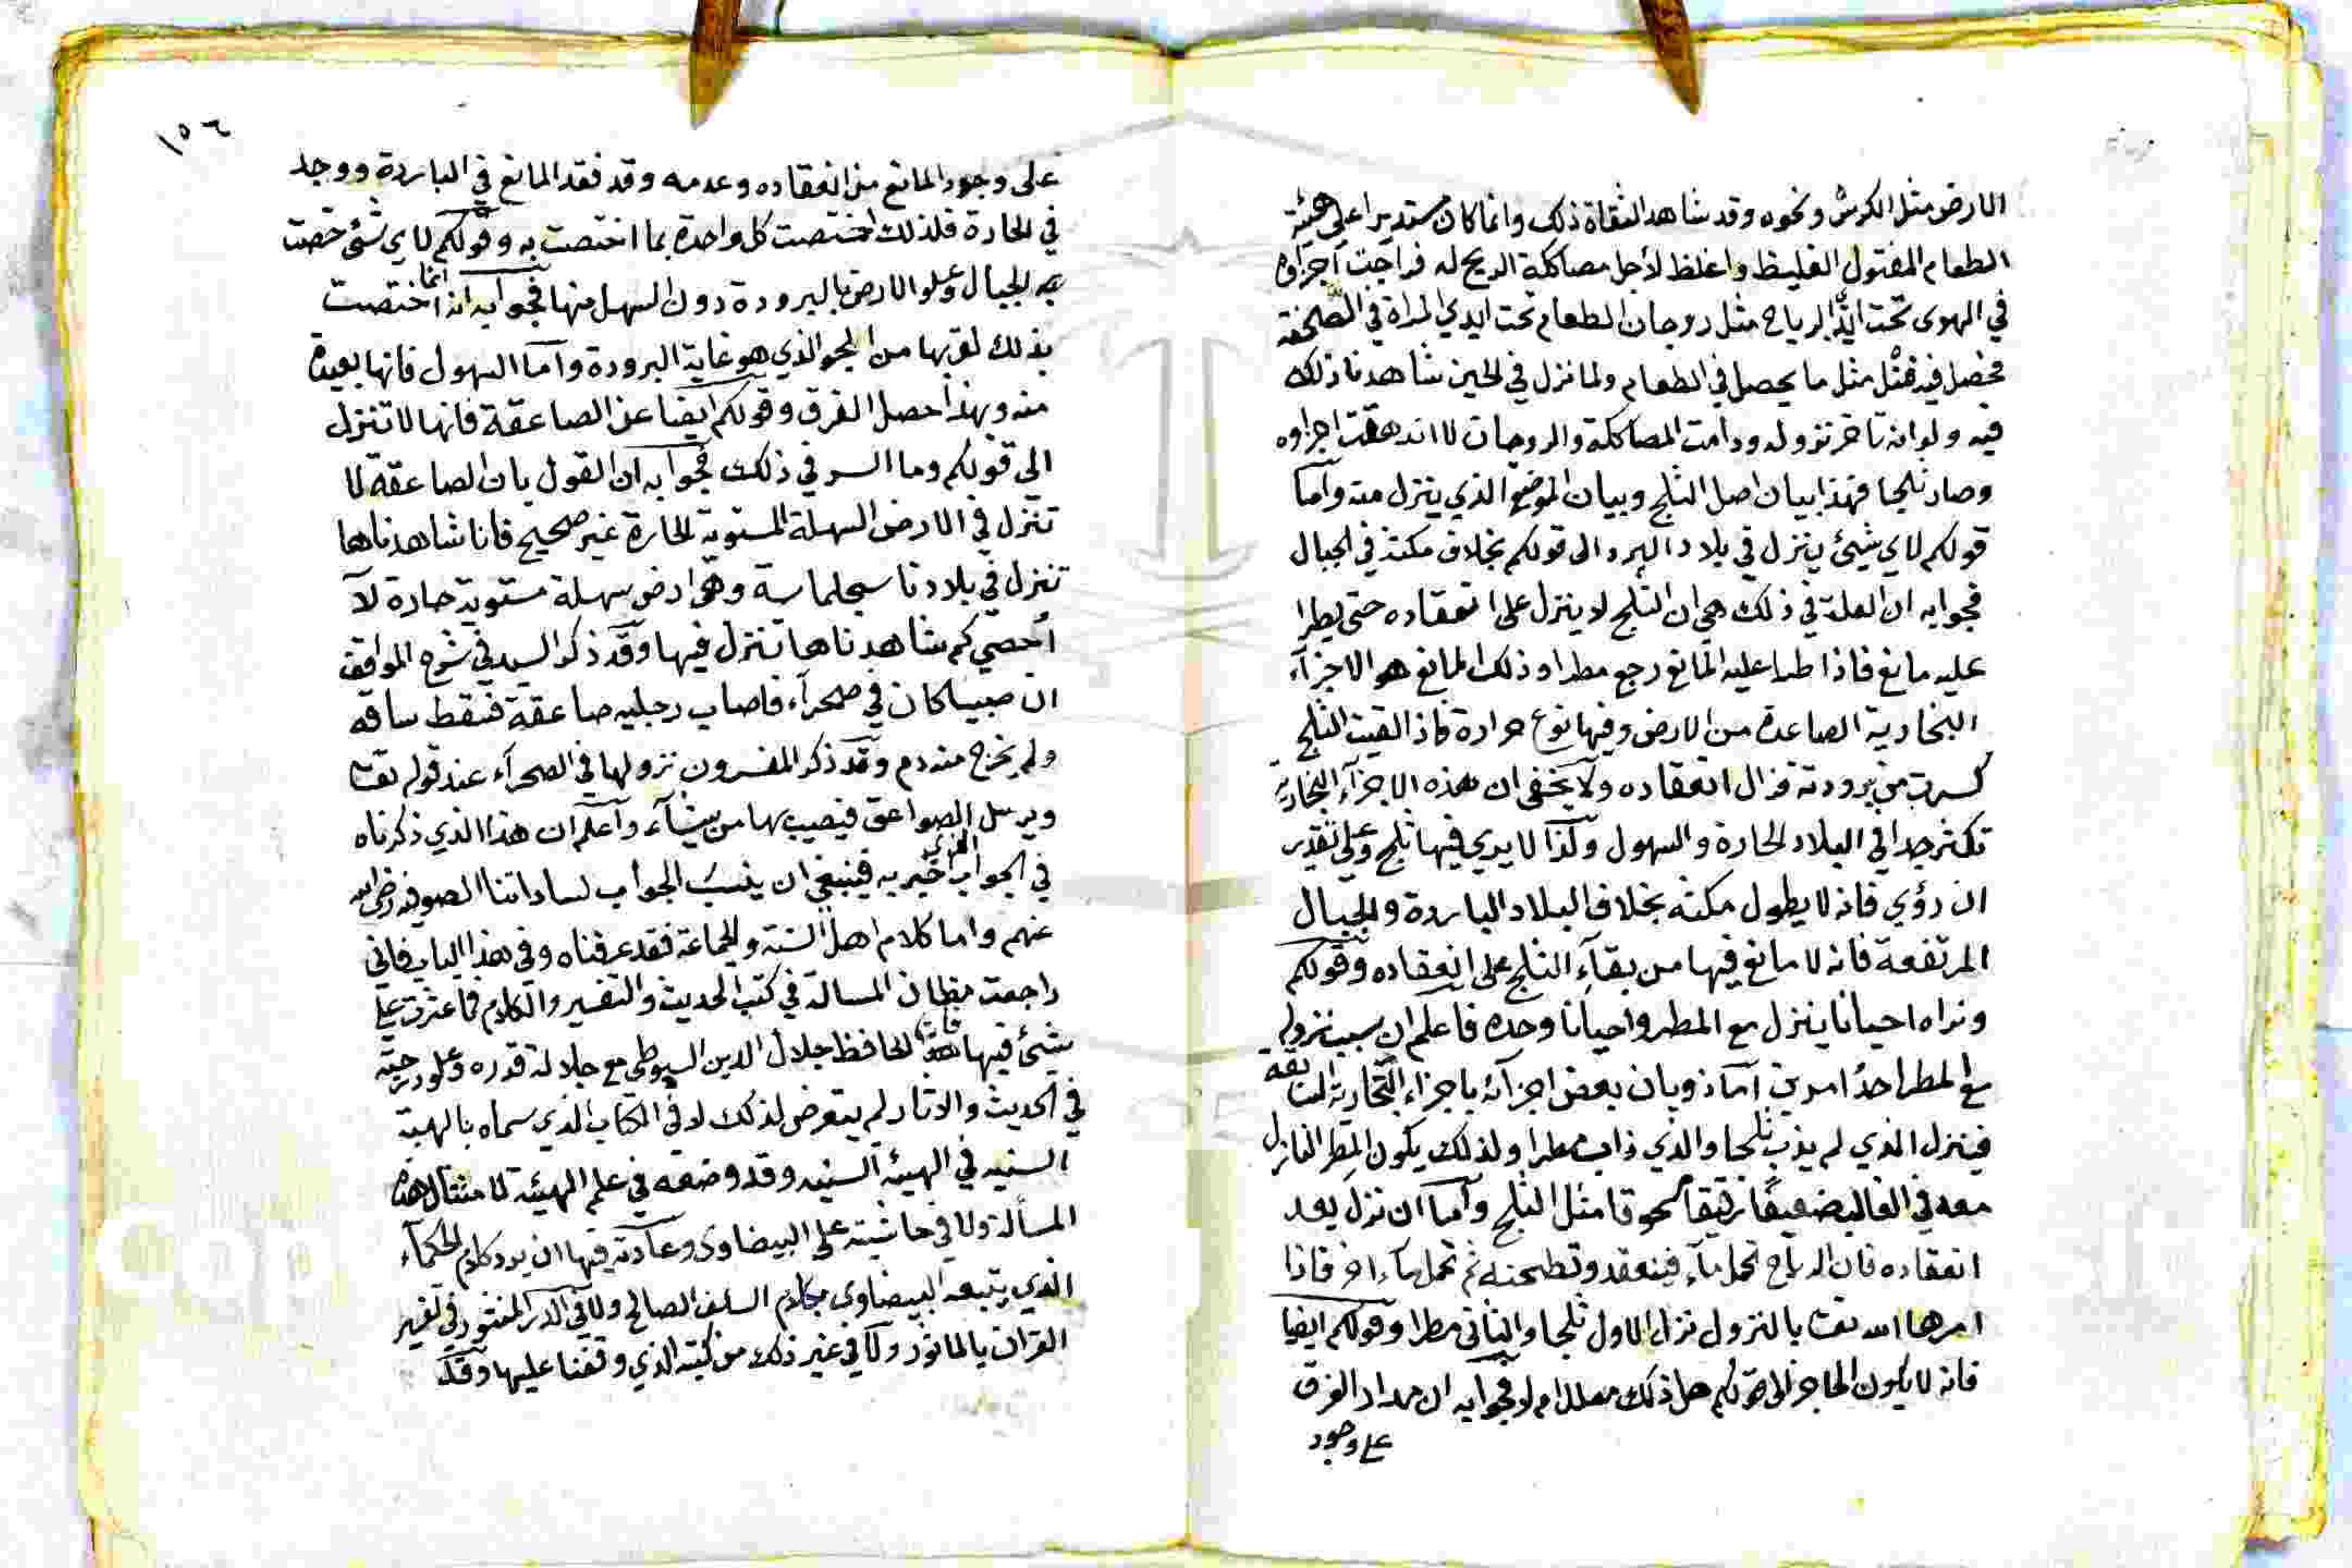 الارض مثل الكرش ونحوه وقد شاهد الثقاة ذلك وانما كان مستديرا على هيئة
الطعام المفتول الغليظ واغلظ لأجل مصاككة الريح له فراجت اجزاؤه
في الهوى تحت ايدي الرياح مثل روجان الطعام تحت ايدي المراة في الصحفة
فحصل فيه فتل مثل ما يحصل في الطعام ولما نزل في الحين شاهدنا ذلك
فيه ولو انه تاخر نزوله ودامت المصاككة والروجان لا اندهقت اجزاوه
وصار ثلجا فهذا بيان اصل الثلج وبيان الموضع الذي ينزل منه وآما
قولكم لاي شيئ ينزل في بلاد البرد الى قولكم بخلاف مكثه في الجبال
فجوابه ان العلة في ذلك هي ان الثلج لا ينزل على انعقاده حتى يطرا
عليه مانع فاذا طرا عليه المانع رجع مطرا وذلك المانع هو الاجزآء
البخارية الصاعدة من الارض وفيها نوع حرارة فاذا لقيت الثلج
كسرت من برودته فزال انعقاده ولا يخفى ان هذه الاجزآء البخارية
تكثر جدا في البلاد الحارة والسهول وكذا لا يري فيها ثلج وعلى تقدير
ان رؤي فانه لا يطول مكثه بخلاف البلاد الباردة والجبال
المرتفعة فانه لا مانع فيها من بقآء الثلج على انعقاده وقولكم
ونراه احيانا ينزل مع المطر واحيانا وحده فاعلم ان سبب نزوله
مع المطر احد امرين آما ذوبان بعض اجزآئه باجزاء البخارية السابقة
فينزل الذي لم يذب ثلجا والذي ذاب مطرا ولذلك يكون المطر النازل
معه في الغالب ضعيفا رقيقا مسحوقا مثل الثلج وآما ان نزل بعد
انعقاده فان الرياح تحمل مآء فينعقد وتطحنه ثم تحمل مآء اخر فاذا
امرها الله تعت بالنزول نزل الاول ثلجا والثاني مطرا وقولكم ايضا
فانه لا يكون الحاجز الى قولكم هل ذلك معلل ام لا فجوابه ان مدار الفرق
على وجود
١٥٦
على وجود المانع من انعقاده وعدمه وقد فقد المانع في الباردة ووجد
في الحارة فلذلك اختصت كل واحدة بما اختصت به وقولكم لاي شيئ خصت
به الجبال وعلو الارض بالبرودة دون السهل منها فجوابه انه انما اختصت
بذلك لقربها من الجو الذي هو غاية البرودة وآما السهول فانها بعيدة
منه وبهذا حصل الفرق وقولكم ايضا عن الصاعقة فانها لا تنزل
الى قولكم وما السر في ذلك فجوابه ان القول بان الصاعقة لا
تنزل في الارض السهلة المستوية الحارة غير صحيح فانا شاهدناها
تنزل في بلادنا سجلماسة وهي ارض سهلة مستوية حارة لآ
أحصي كم شاهدناها تنزل فيها وقد ذكر السيد في شرح المواقف
ان صبيا كان في صحرآء فاصاب رجليه صاعقة فسقط ساقه
ولم يخرج منه دم وقد ذكر المفسرون نزولها في الصحرآء عند قوله تعت
ويرسل الصواعق فيصيب بها من يشآء وآعلم ان هذا الذي ذكرناه
في الجواب خبر به فينبغي ان ينسب الجواب لساداتنا الصوفيه رضي الله
عنهم واما كلام اهل السنة والجماعة فقد عرفناه وفي هذا الباب فاني
راجعت مظان المسالة في كتب الحديث والتفسير والكلام فما عثرت على
شيئ فيها الحافظ جلال الدين السيوطي مع جلالة قدره وعلو درجته
في الحديث والاثار لم يتعرض لذلك لا في الكتاب الذي سماه بالهيئة
السنيه في الهيئه السنيه وقد وضعه في علم الهيئة لامثال هذه
المسألة ولا في حاشيته على البيضاوي وعادته فيها ان يرد كلام الحكمآء
الذي يتبعه البيضاوي بكلام السلف الصالح ولا في الدر المنثور في تفسير
القران بالماثور ولآ في غير ذلك من كتبه الذي وقفنا عليها وقد